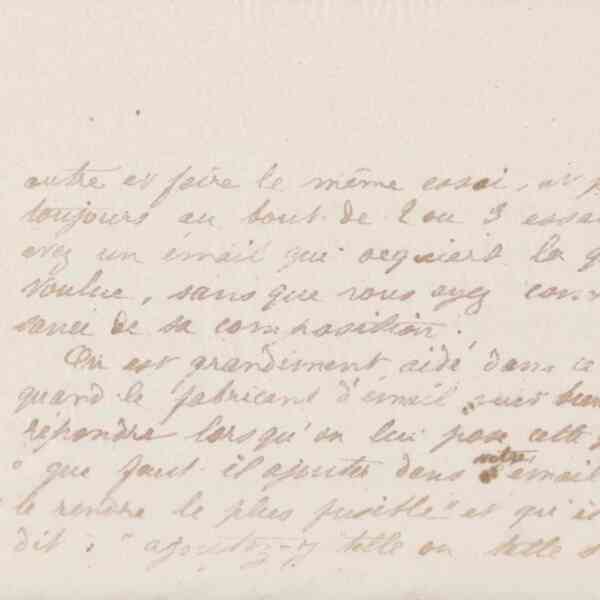 autre et faire le même essai, et
toujours au bout de 2 ou 3 essa
avez un émail qui acquiert la
voulue, sans que vous ayez conn
sance de sa composition.
On est grandiment aidé dans ce
quand le fabricant d'émail veut bien
répondre lorsqu'on lui pose cette
" que faut il ajouter dans votre émail
le rendre le plus fusible" et qu'il
dit : " ajoutez-y telle ou telle